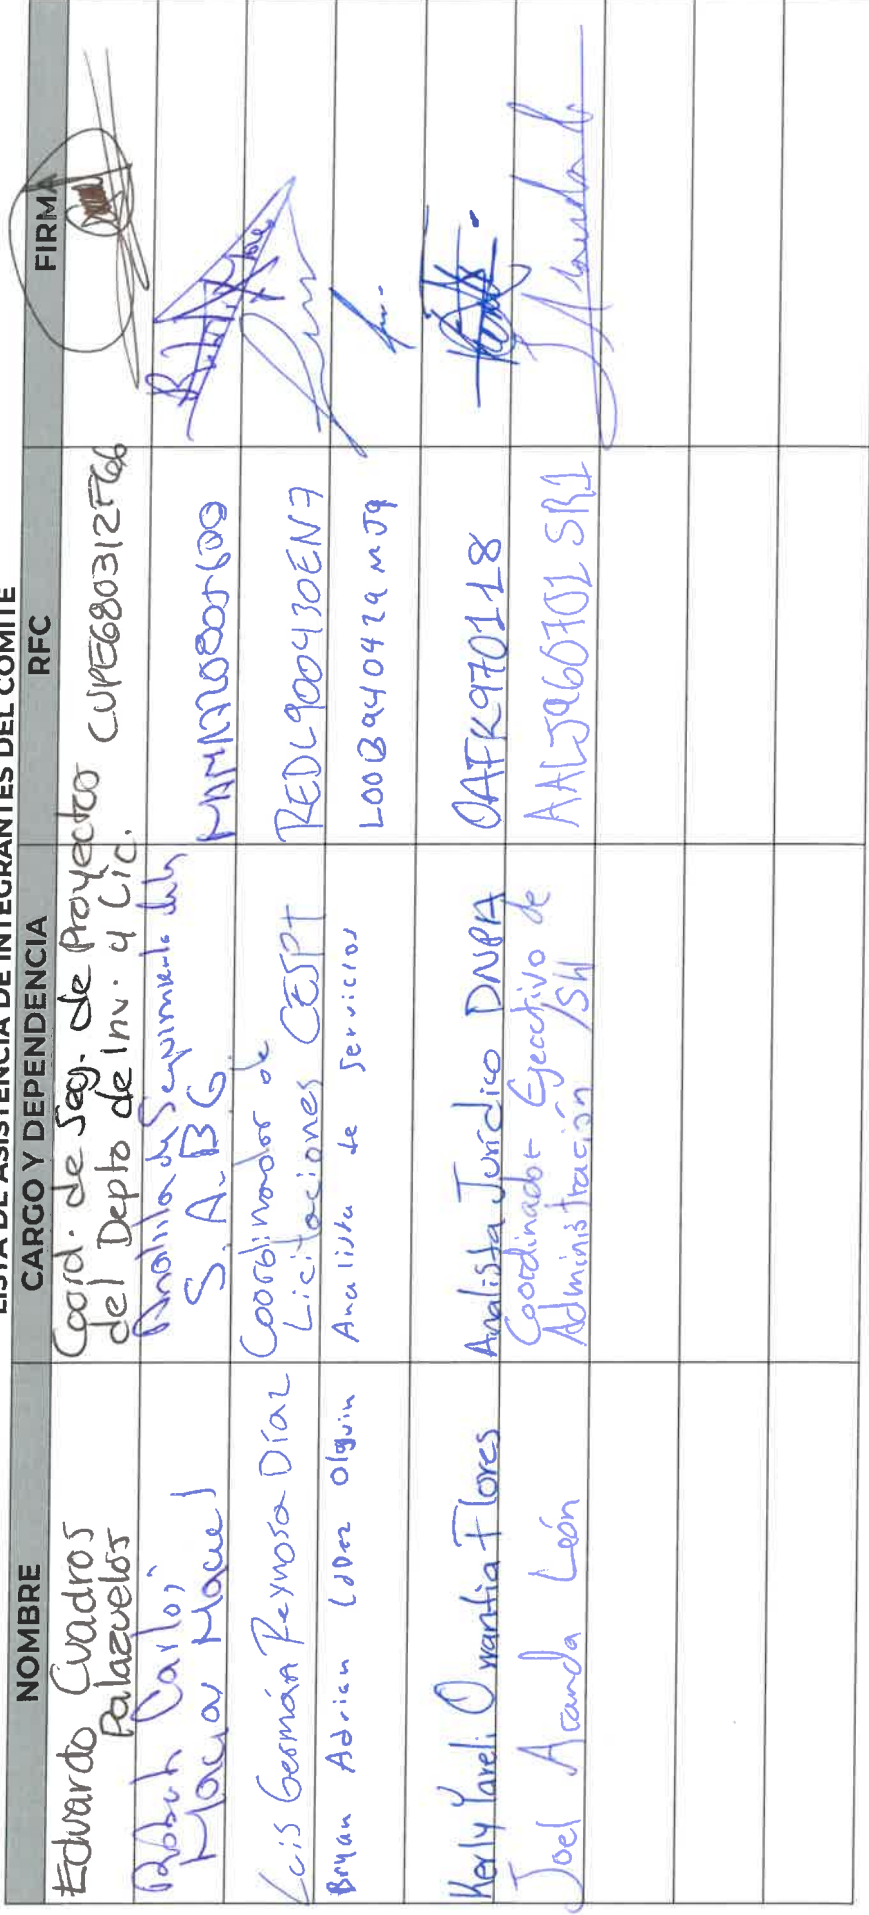 LISTA DE ASISTENCIA DE INTEGRANTES DEL COMITÉ
NOMBRE
CARGO Y DEPENDENCIA
RFC
FIRMA
Eduardo Cuadros
Palazuelos
Coord. de Seg. de Proyectos
del Depto de Inv. y Lic.
CUPE680312F66
Carlos
Macias Maciel
Analista de Seguimiento
S.A.B.G.
Luis Germán Reynosa Díaz
Coordinador de
Licitaciones CESPT
REDL900430EN7
Bryan Adrian López Olguin
Analista de Servicios
LOOB940429MJ9
Kerly Yareli Owantia Flores
Analista Jurídico DNPA
OAFK970118
Joel Aranda León
Coordinador Ejecutivo de
Administración /SH
AALJ960701SR1